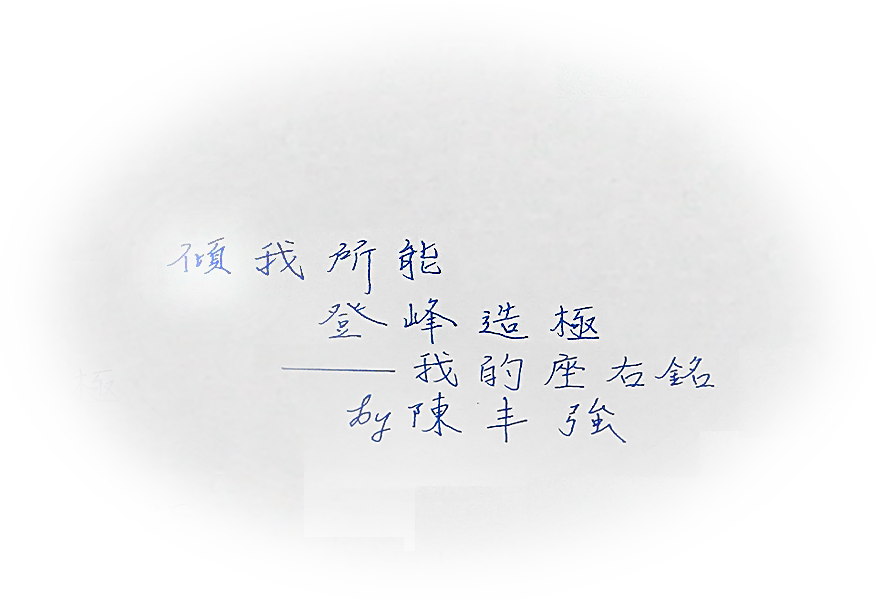 傾我所能
登峰造極
——我的座右銘
by 陳丰強